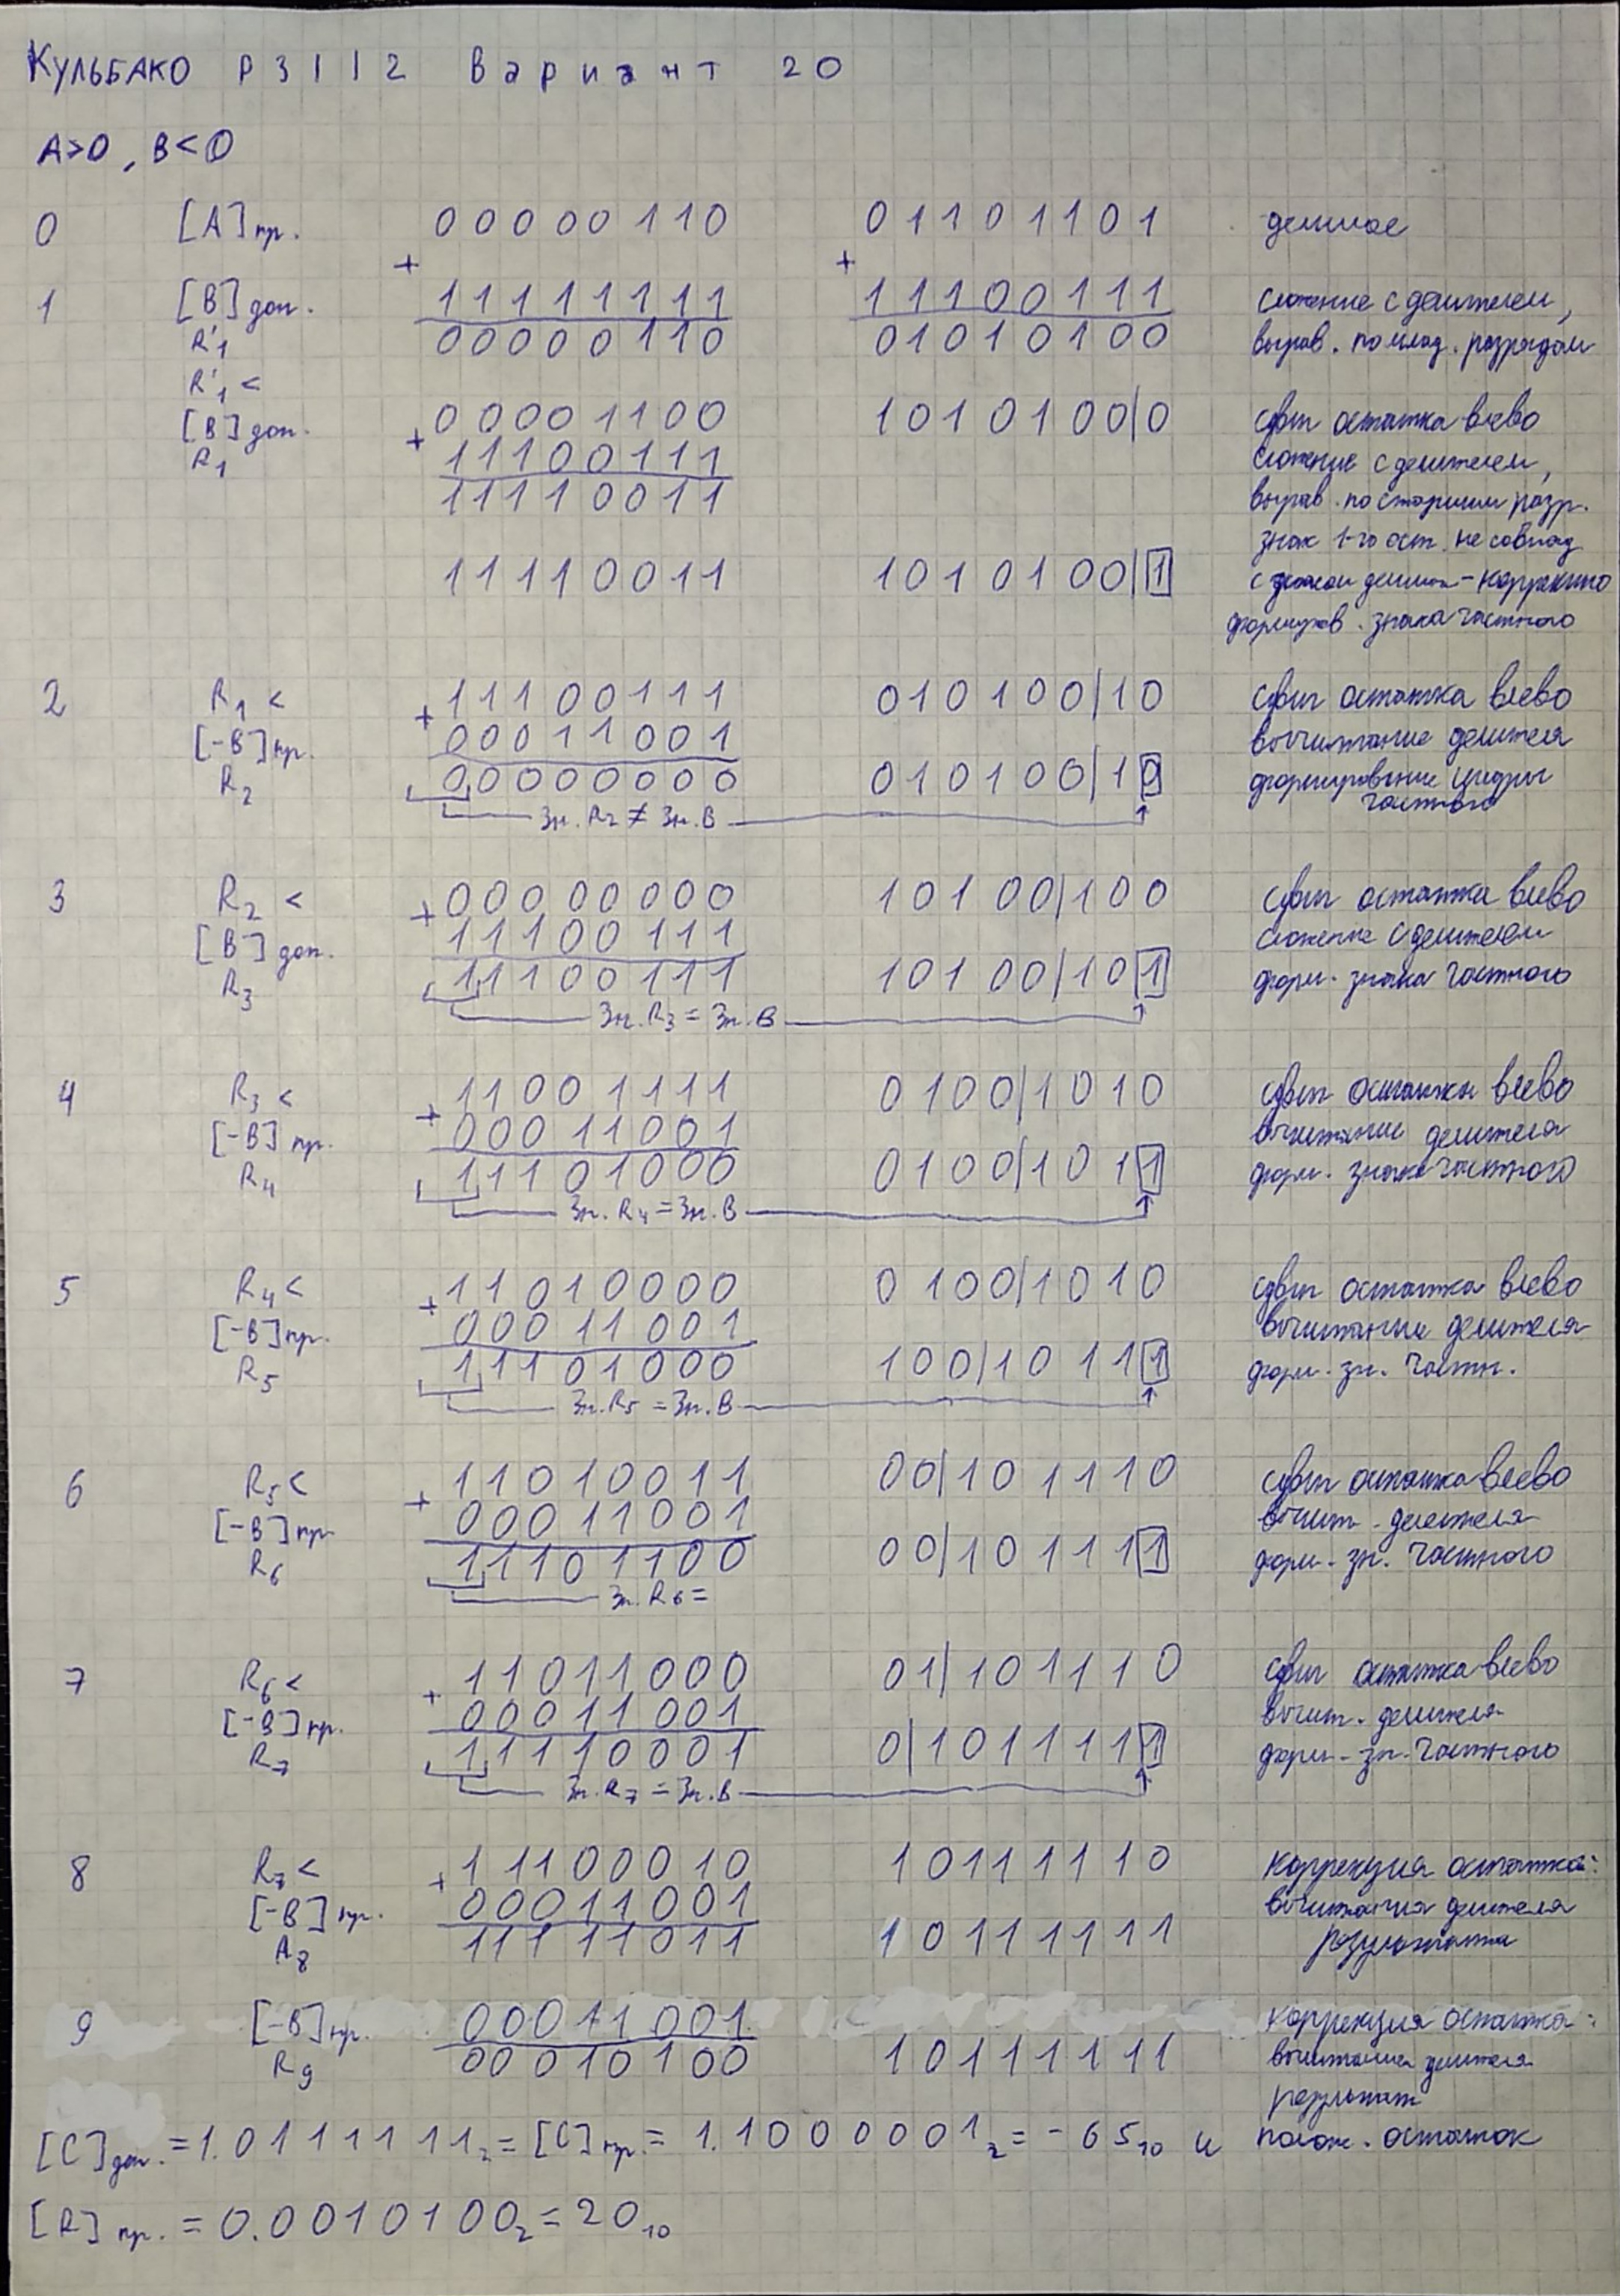 Кульбако Р3112 Вариант 20
A>0, B<0
0 [A]пр. 00000110 01101101 делимое
+ +
1 [B]доп. 11111111 11100111 сложение с делителем,
R'1 00000110 01010100 вырав. по млад. разрядам
R'1 <
00001100 1010100|0 сдвиг остатка влево
[B]доп. + 11100111 сложение с делителем,
R1 11110011 вырав. по старшим разр.
знак 1-го ост. не совпад
11110011 1010100|1 с знаком делим - корректно
формиров. знака частного
2 R1 < 11100111 010100|10 сдвиг остатка влево
[-B]пр. + 00011001 вычитание делителя
R2 00000000 010100|10 формирование цифры частного
Зн. R2 ≠ Зн. B
3 R2 < 00000000 10100|100 сдвиг остатка влево
[B]доп. + 11100111 сложение с делителем
R3 11100111 10100|101 форм. знака частного
Зн. R3 = Зн. B
4 R3 < 11001111 0100|1010 сдвиг остатка влево
[-B]пр. + 00011001 вычитание делителя
R4 11101000 0100|1011 форм. знака частного
Зн. R4 = Зн. B
5 R4 < 11010000 0100|1010 сдвиг остатка влево
[-B]пр. + 00011001 вычитание делителя
R5 11101000 100|10111 форм. зн. частн.
Зн. R5 = Зн. B
6 R5 < 11010011 00|101110 сдвиг остатка влево
[-B]пр. + 00011001 вычит. делителя
R6 11101100 00|101111 форм. зн. частного
Зн. R6 =
7 R6 < 11011000 01|101110 сдвиг остатка влево
[-B]пр. + 00011001 вычит. делителя
R7 11110001 0|1011111 форм. зн. частного
Зн. R7 = Зн. B
8 R7 < 11100010 10111110 коррекция остатка:
[-B]пр. + 00011001 вычитания делителя
A8 11111011 10111111 результата
9 [-B]пр. 00011001 коррекция остатка:
R9 00010100 10111111 вычитание делителя
результат
[C]доп. = 1.0111111₂ = [C]пр. = 1.1000001₂ = -65₁₀ и полож. остаток
[R]пр. = 0.0010100₂ = 20₁₀